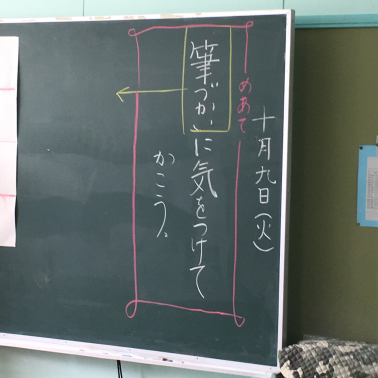 十月九日(火)
めあて
筆づかいに気をつけて
かこう。